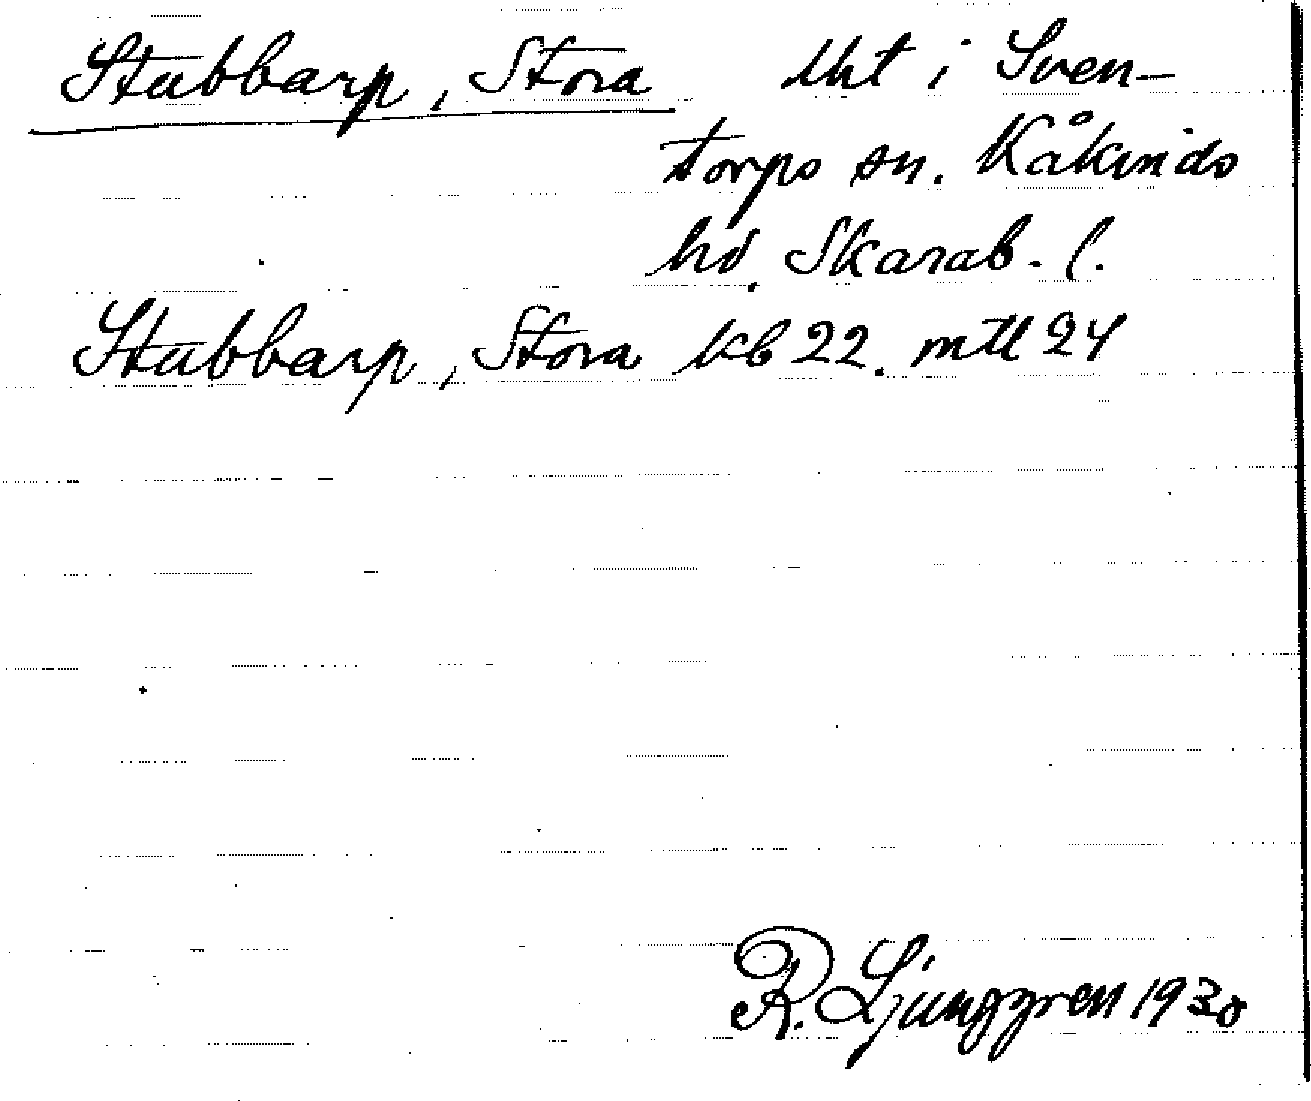 Stubbarp, Stora Uht i Sven-
torps sn. Kåkinds
hd. Skarab. l.
Stubbarp, Stora kb 22. mtl 24
R. Ljunggren 1930